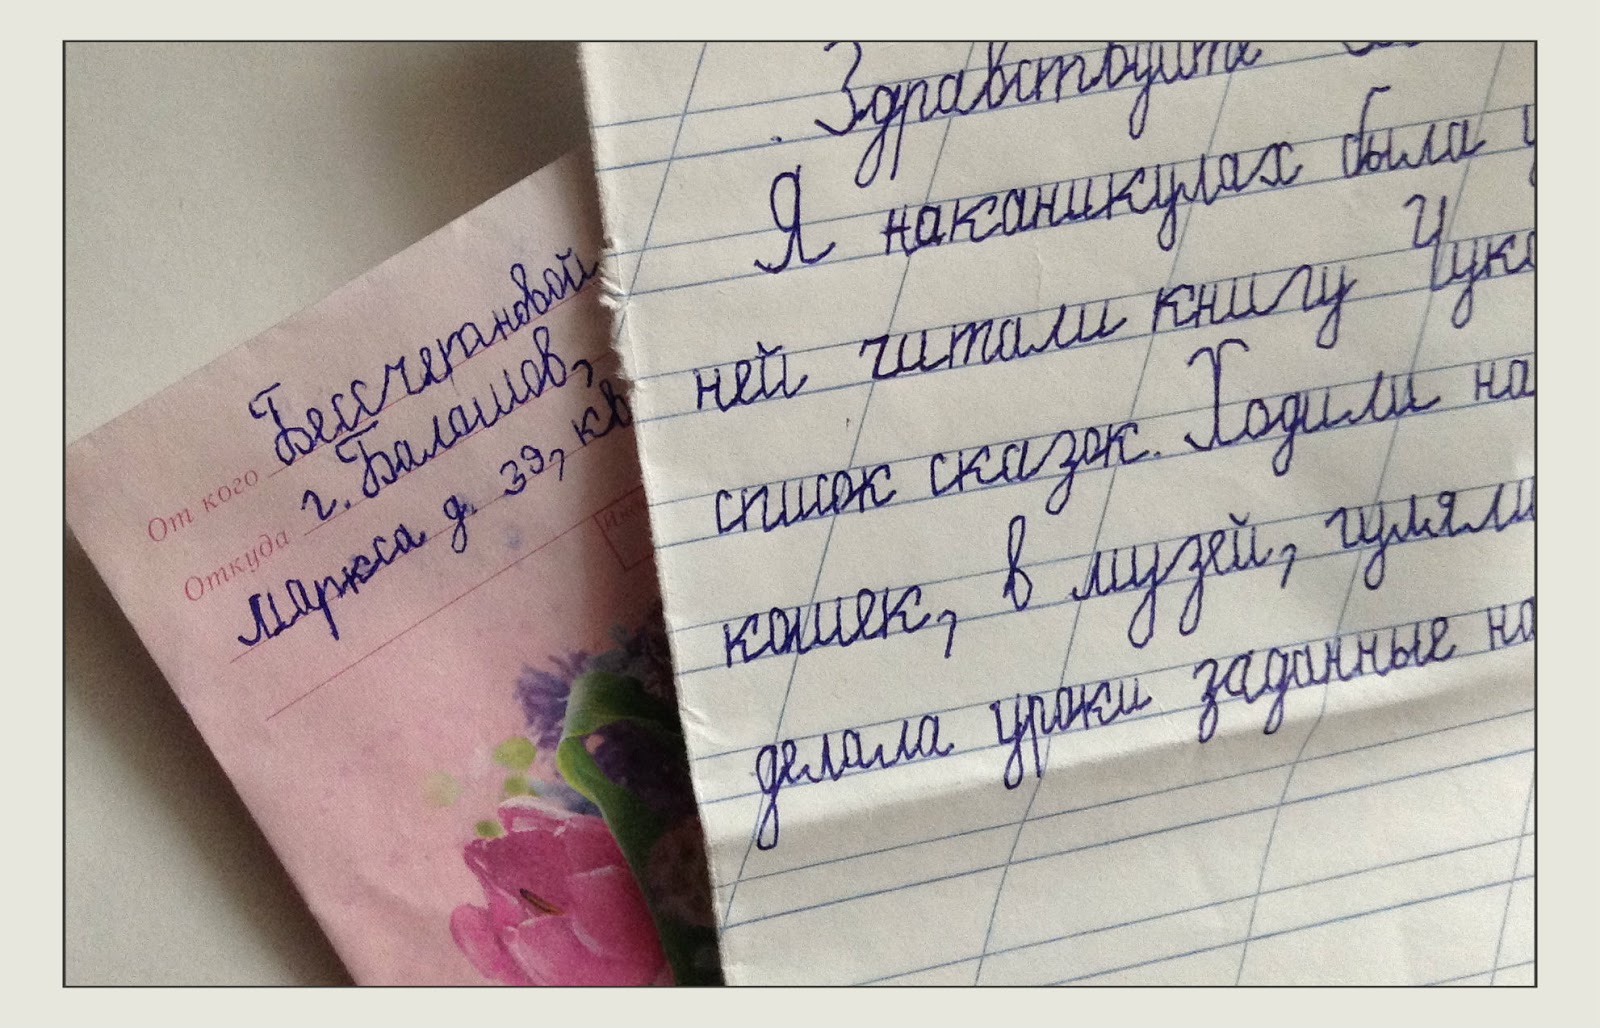 От кого Бессчетановой
Откуда г. Балашов,
Маркса д. 39, кв
Здравствуйте
Я наканикулах была у
ней читали книгу Чуко
список сказок. Ходили на
кошек, в музей, гуляли
делала уроки заданные на